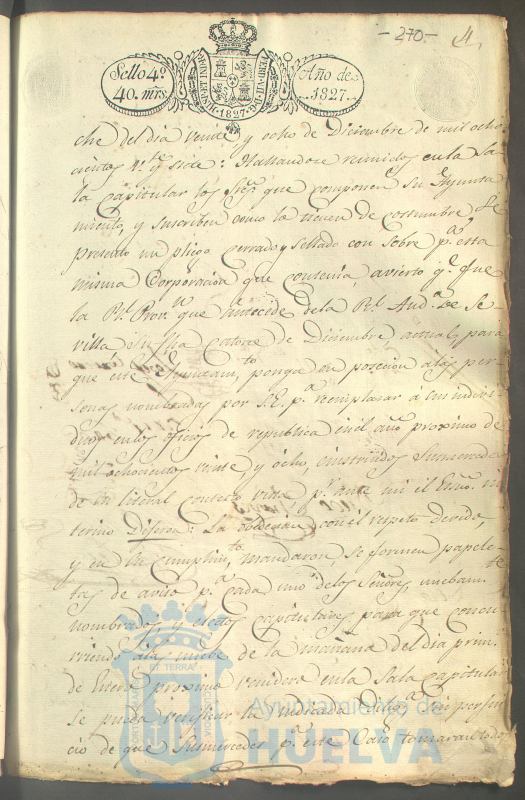 -270- 4
Sello 4º
40. mrs.
HISPAN. ET IND. R. FERD. VII. D. G.
1827
Año de
1827.
che del dia veinte y ocho de Diciembre de mil ocho
cientos vte. y siete: Hallandose reunidos en la Sa
la Capitular los Sres. que componen su Ayunta
miento, y suscriben como lo tienen de costumbre, Se
presentó un pliego cerrado y sellado con sobre pa. esta
misma Corporacion que contenia, avierto q. fue
la Rl. Provn. que antecede de la Rl. Auda. de Se
villa su fha Catorce de Diciembre actual, para
que este Ayuntamto. ponga en posecion a las per
sonas nombradas por S.E. pa. reemplazar a los indivi
duos en los oficios de republica en el año proximo de
mil ochocientos veinte y ocho, enstruidos Sumercedes
de su literal contexto vista pr. ante mi el Esno. in
terino Dijeron: La obedecian con el respeto devido,
y en su cumplimto. mandaron, se formen papele
tas de aviso pa. cada uno de los Señores nuebamte.
nombrados y electos Capitulares para que concu
rriendo a las nueve de la mañana del dia prim.
de Enero proximo venidero en la Sala Capitular
se pueda verificar la indicada Diliga. sin perjui
cio de que Sumercedes pa. este Caso tomaran todos
PORTUS MARIS ET TERRAE CUSTODIA
Ayuntamiento de
HUELVA